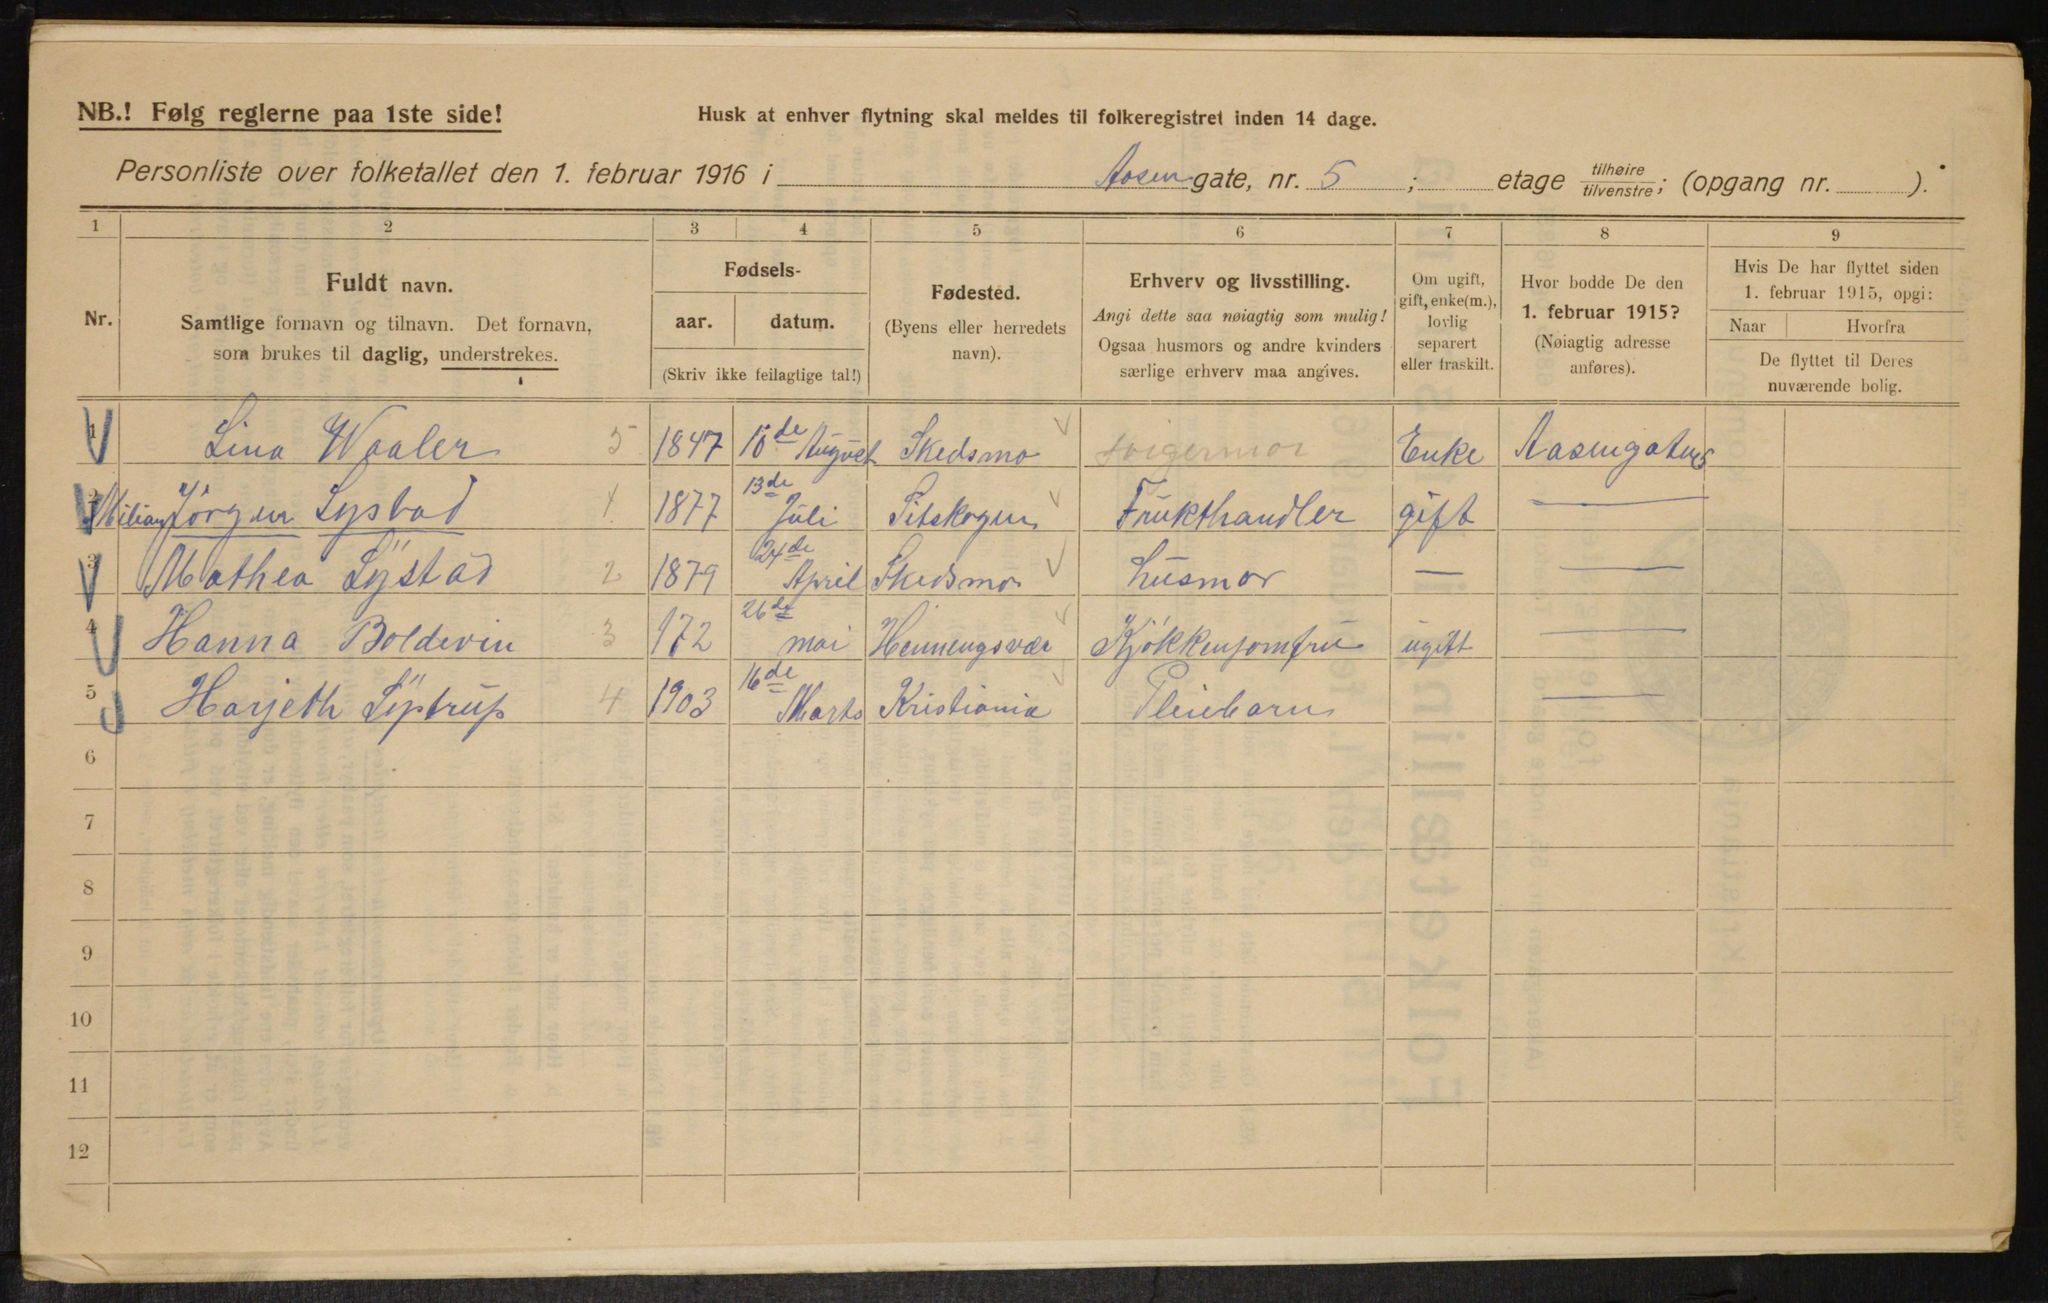 NB.! Følg reglerne paa 1ste side!
Husk at enhver flytning skal meldes til folkeregistret inden 14 dage.
Personliste over folketallet den 1. februar 1916 i Aasen gate, nr. 5 ; etage tilhøire / tilvenstre ; (opgang nr. ).
1 2 3 4 5 6 7 8 9
Nr.
Fuldt navn.
Samtlige fornavn og tilnavn. Det fornavn,
som brukes til daglig, understrekes.
Fødsels-
aar. datum.
(Skriv ikke feilagtige tal!)
Fødested.
(Byens eller herredets
navn).
Erhverv og livsstilling.
Angi dette saa nøiagtig som mulig!
Ogsaa husmors og andre kvinders
særlige erhverv maa angives.
Om ugift,
gift, enke(m.),
lovlig
separert
eller fraskilt.
Hvor bodde De den
1. februar 1915?
(Nøiagtig adresse
anføres).
Hvis De har flyttet siden
1. februar 1915, opgi:
Naar Hvorfra
De flyttet til Deres
nuværende bolig.
1 Lina Waaler 5 1847 10de August Skedsmo svigermor Enke Aasengaten 5
2 Jörgen Lystad 1 1877 13de Juli Fruкthandler gift —
3 Mathea Lystad 2 1879 24de April Skedsmo husmor — —
4 Hanna Boldevin 3 172 26de mai Hennengsvær Kjøkkenjomfru ugift —
5 Harjeth Lystrup 4 1903 16de Marts Kristiania Pleiebarn —
6
7
8
9
10
11
12